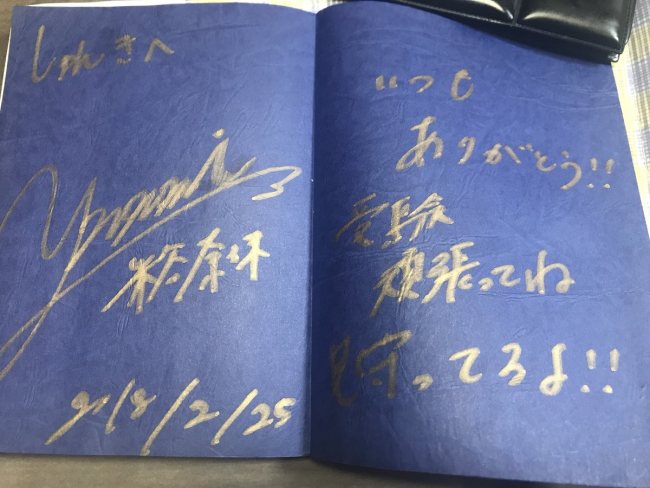 しゅんきへ
2018/2/25
いつも
ありがとう!!
受験
頑張ってね
見守ってるよ!!